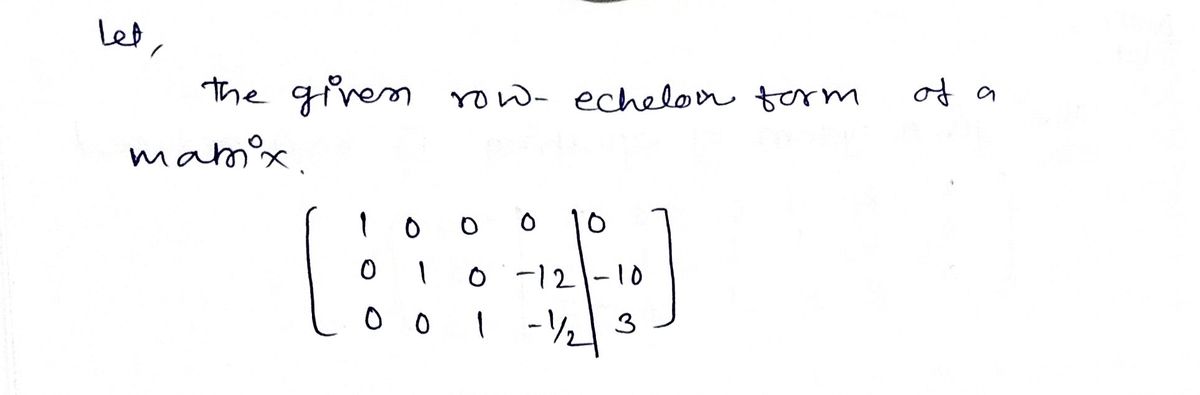 Let,
the given row- echelon form of a
matrix.
1 0 0 0 | 0
0 1 0 -12 | -10
0 0 1 -1/2 | 3